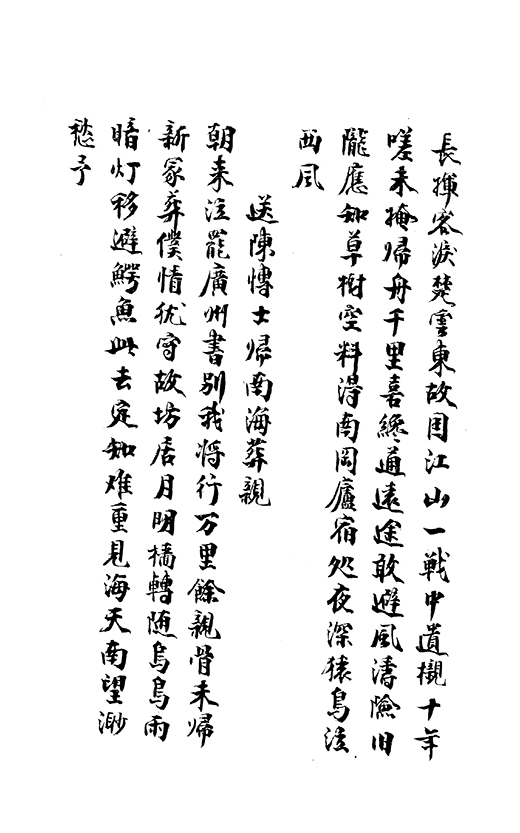 長揮客淚楚雲東故囯江山一戦中遺櫬十年
嗟未掩帰舟千里喜纔通遠途敢避風濤險旧
隴應知草樹空料得南岡廬宿処夜深猿鳥泣
西風
送陳博士帰南海葬親
朝来泣罷廣州書別我將行万里餘親骨未帰
新冢葬僕情犹守故坊居月明檣轉随烏烏雨
暗灯移避鰐魚此去定知难重見海天南望渺
愁予